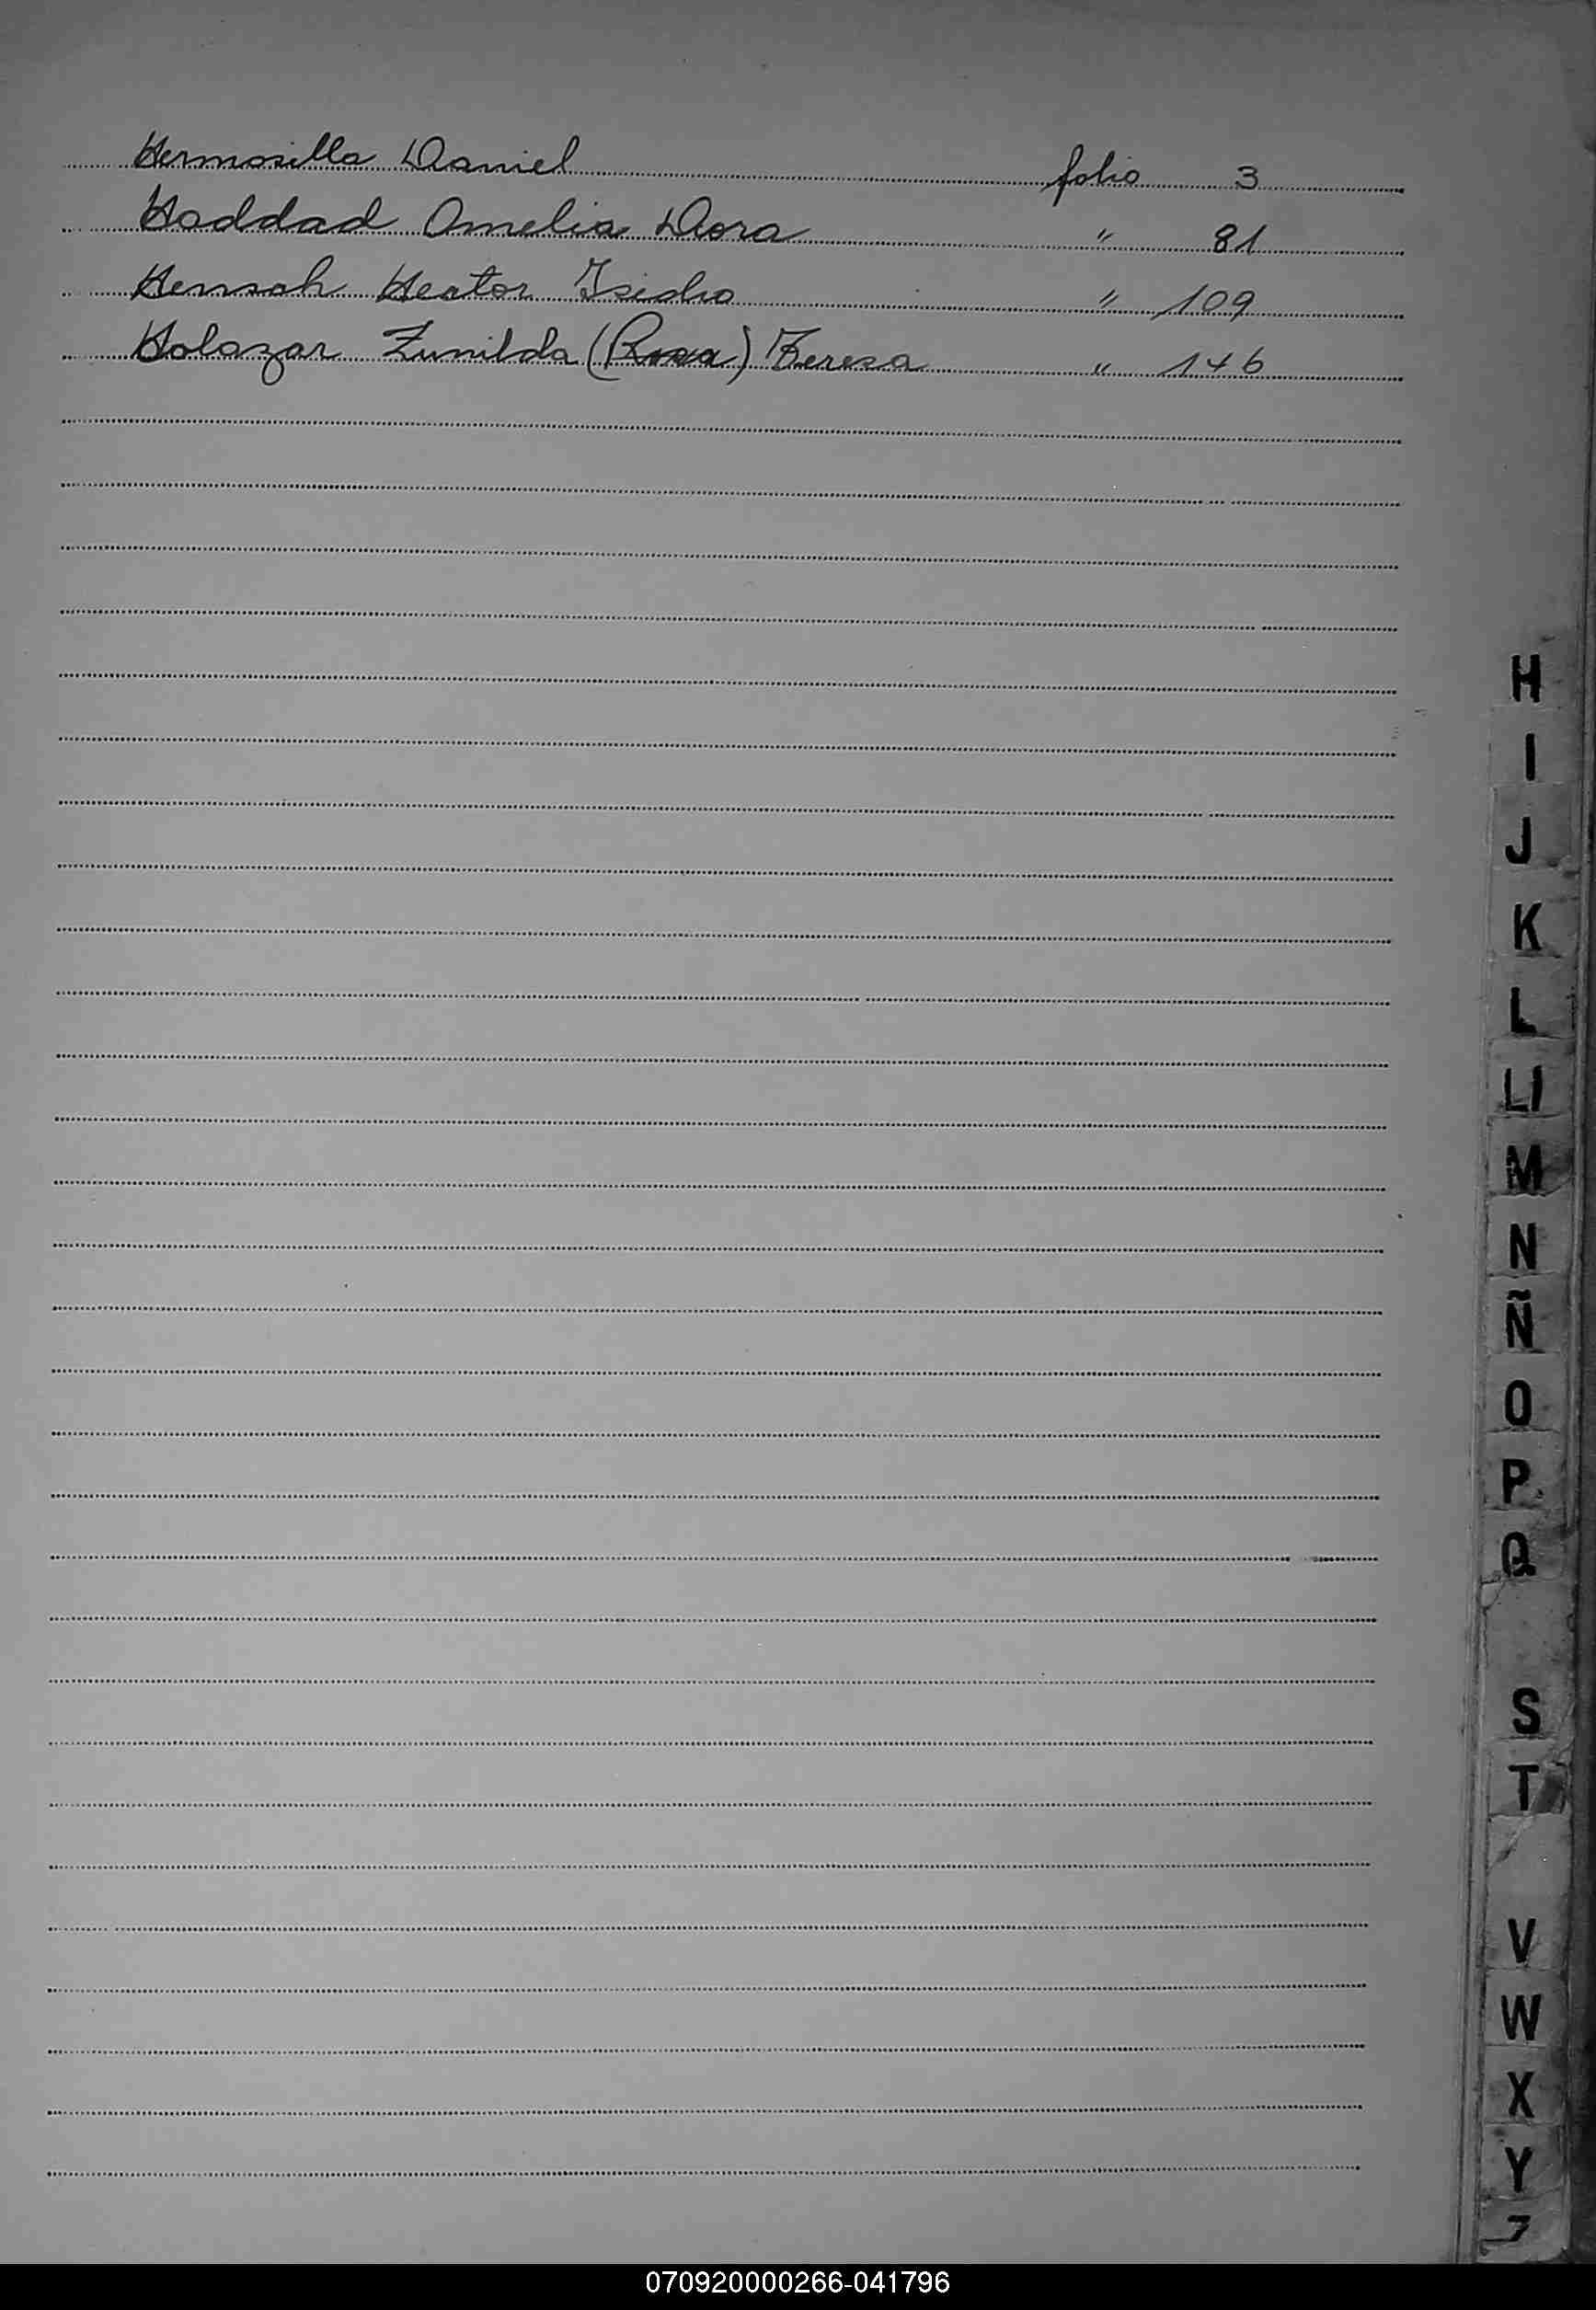 Hermosilla Daniel folio 3
Haddad Amelia Dora " 81
Hensch Hector Isidro " 109
Holazar Zunilda (Rosa) Teresa " 146
H
I
J
K
L
Ll
M
N
Ñ
O
P
Q
S
T
V
W
X
Y
Z
070920000266-041796